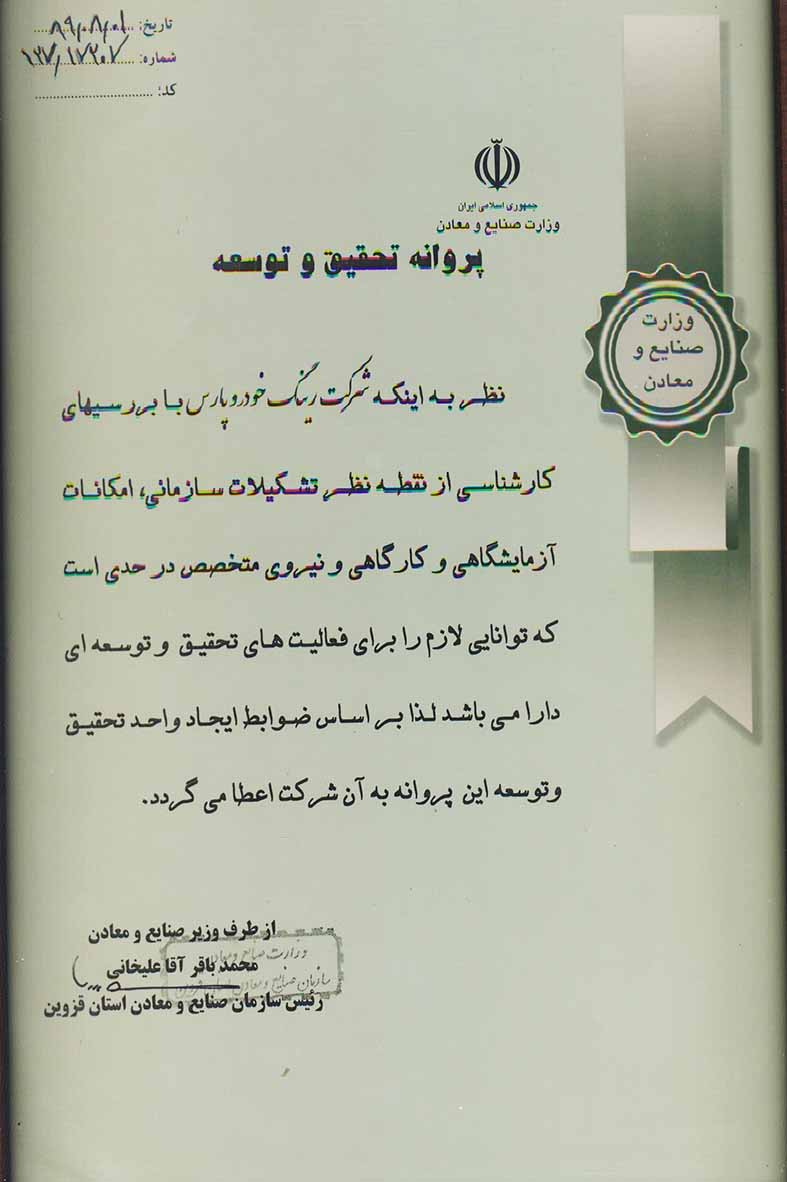 تاریخ: ۸۹/۸/۰۱
شماره: ۱۲۷/۱۷۲۰۷
کد:
جمهوری اسلامی ایران
وزارت صنایع و معادن
پروانه تحقیق و توسعه
وزارت
صنایع و
معادن
نظر به اینکه شرکت رینگ خودرو پارس با بررسیهای
کارشناسی از نقطه نظر تشکیلات سازمانی، امکانات
آزمایشگاهی و کارگاهی و نیروی متخصص در حدی است
که توانایی لازم را برای فعالیت های تحقیق و توسعه ای
دارا می باشد لذا بر اساس ضوابط ایجاد واحد تحقیق
و توسعه این پروانه به آن شرکت اعطا می گردد.
از طرف وزیر صنایع و معادن
وزارت صنایع و معادن
محمد باقر آقا علیخانی
سازمان صنایع و معادن استان قزوین
رئیس سازمان صنایع و معادن استان قزوین